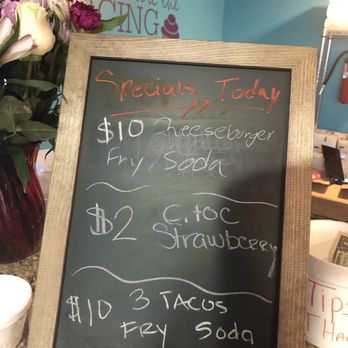 the
CING
Specials Today
$10 Cheeseburger
Fry, Soda
$2 C. toc
Strawbcery
$10 3 TACOS
FRY Soda
Tips
THa